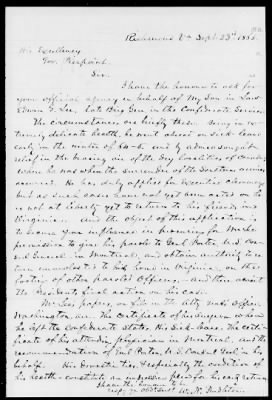 Richmond Va Sept. 23rd 1865.
His Excellency
Gov. Pierpoint.
Sir.
I have the honour to ask for
your official agency in behalf of my Son in Law
Edwin G. Lee, late Brig Gen in the Confederate Service.
The circumstances are briefly these. Being in ex-
tremely delicate health, he went abroad on sick leave
early in the winter of 64-5 and by advice sought
relief in the bracing air of the dry localities of Canada,
where he was when the surrender of the Southern armies
occurred. He has duly applied for Executive clemency
but as such cases have not yet been acted on he
is not at liberty yet to return to his friends in
Virginia, and the object of this application is
to secure your influence in procuring for him the
permission to give his parole to Genl Potter, our Con-
sul General in Montreal, and obtain authority to re-
turn unmolested to his home in Virginia, on the
footing of other paroled officers, and there await
the Presidential action in his case.
Mr Lee's papers, on file in the Atty Genl's Office,
Washington, are The certificate of his Surgeon when
he left the Confederate States, His Sick-leave. The certi-
ficate of his attending physician in Montreal, and the
recommendation of Mr Potter, U. S. Consul Genl, in his
behalf. His domestic ties, & especially the condition of
his health constitute an urgent plea for his early return
I have the honour to be
resp. yr obdt Servt W. N. Pendleton.